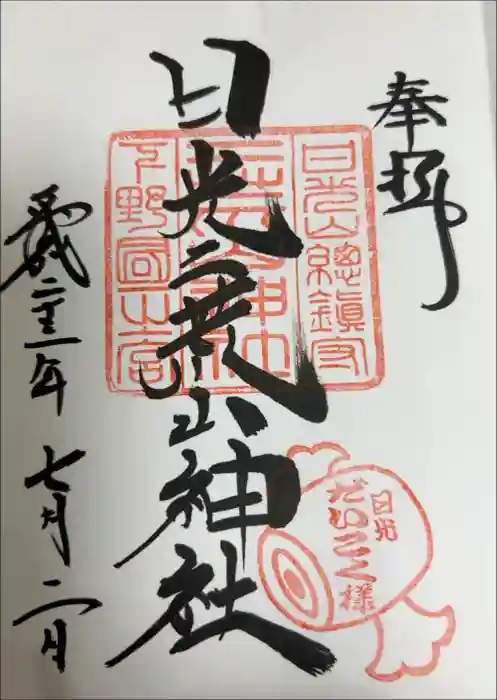 奉拝
日光二荒山神社
日光山總鎮守
二荒山神社
下野國一之宮
日光
だいこく様
二十三年七月二日